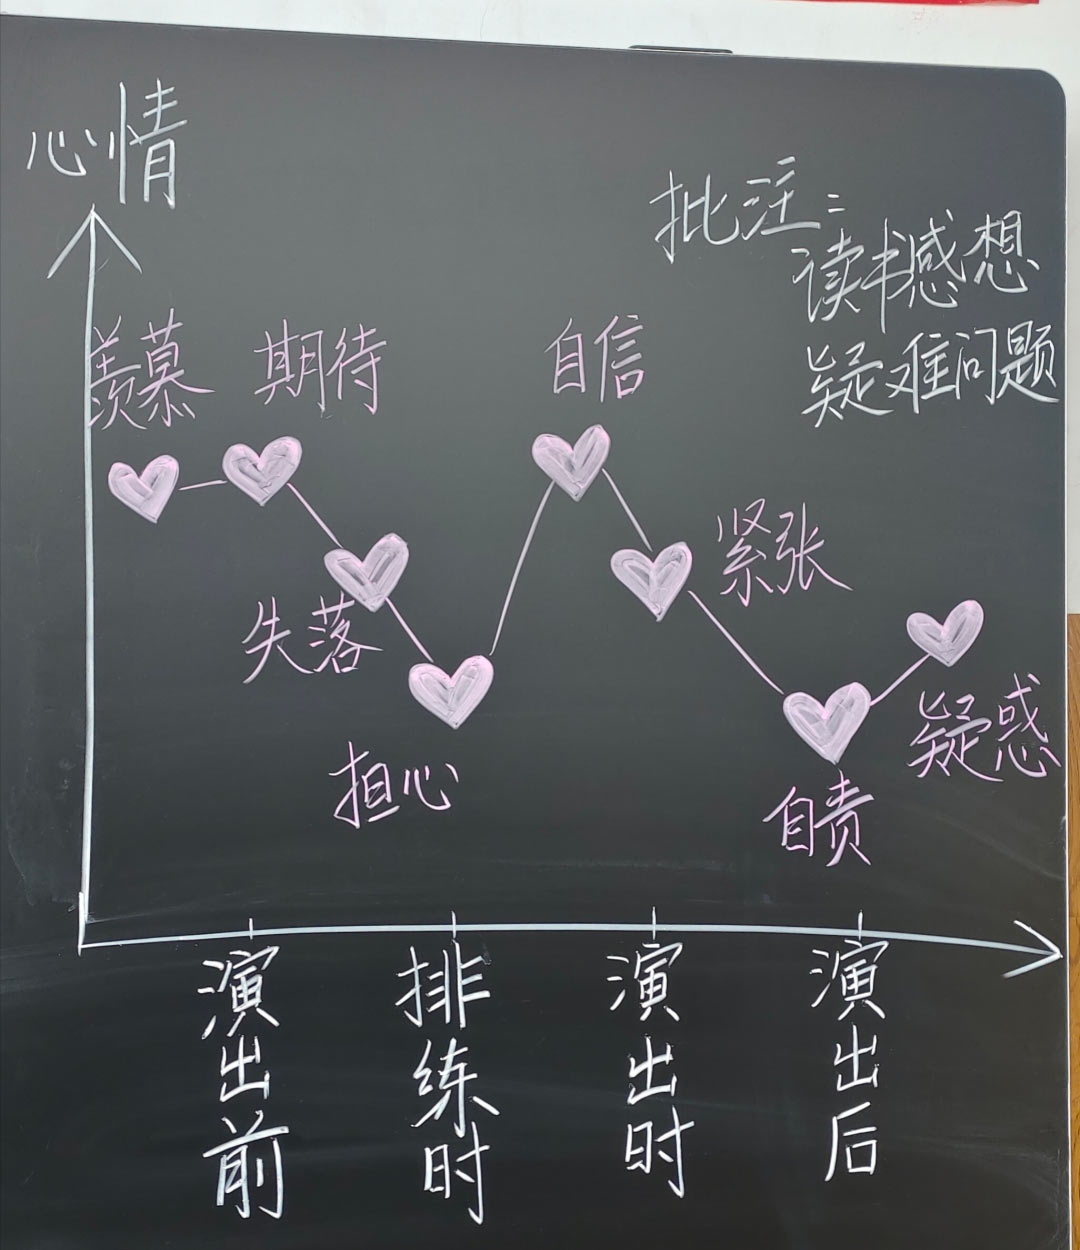 心情
批注：
读书感想
疑难问题
羡慕
期待
自信
失落
紧张
担心
自责
疑惑
演出前
排练时
演出时
演出后